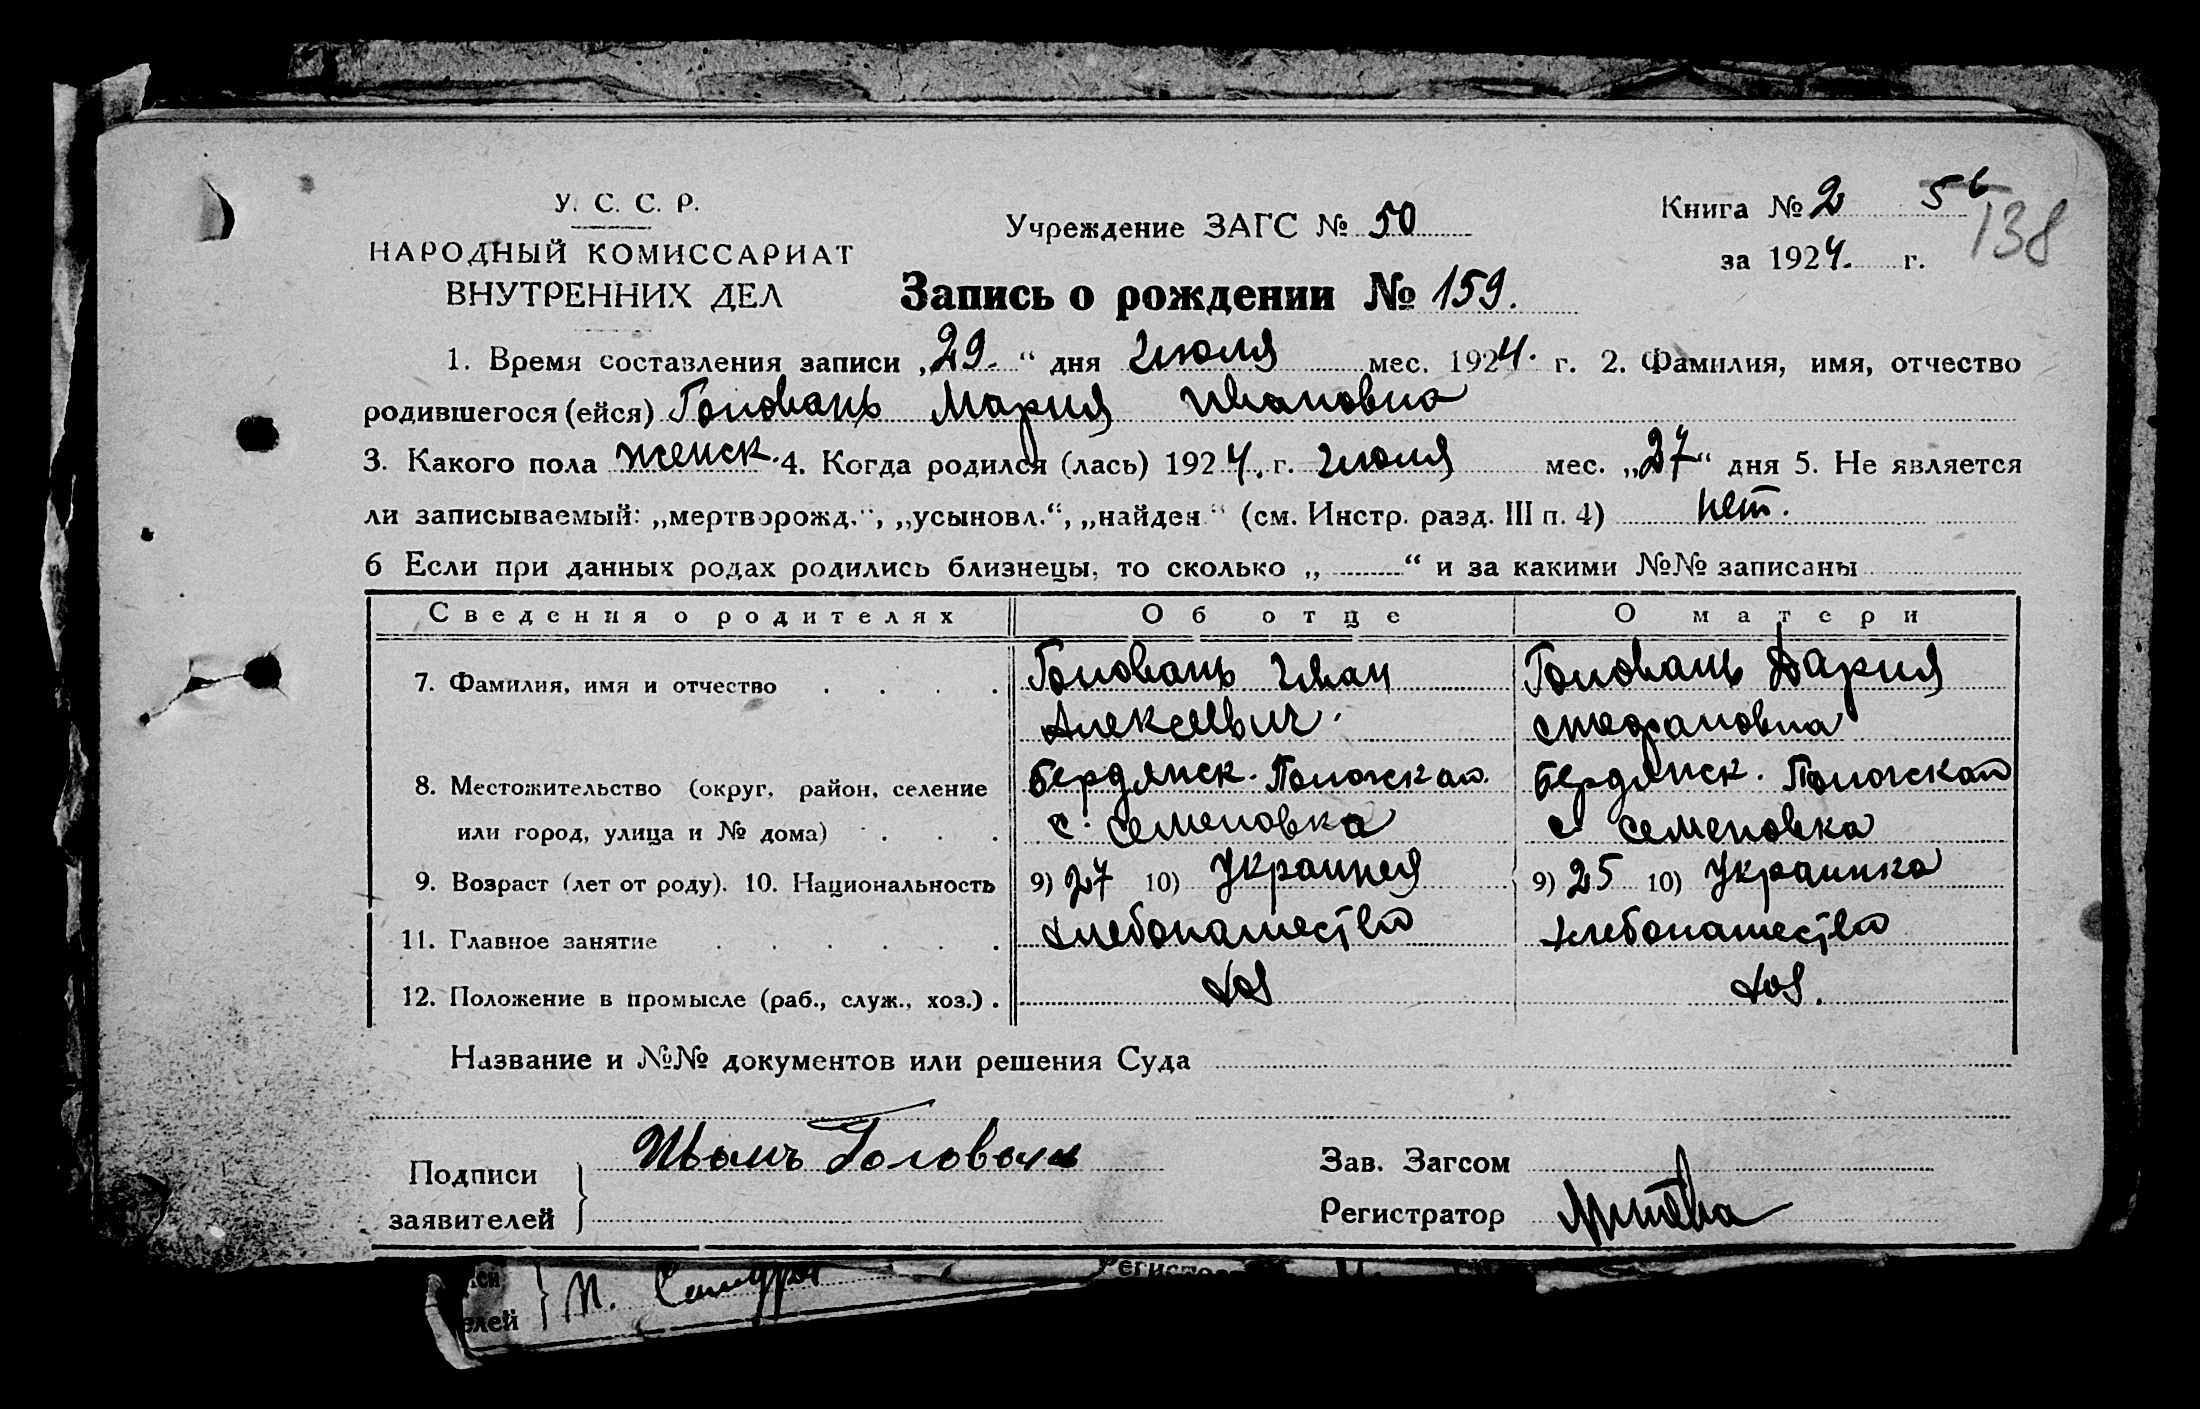 У. С. С. Р.
НАРОДНЫЙ КОМИССАРИАТ
ВНУТРЕННИХ ДЕЛ
Учреждение ЗАГС № 50
Книга № 2 56
138
за 1924. г.
Запись о рождении № 159.
1. Время составления записи „29.“ дня Июля мес. 1924. г. 2. Фамилия, имя, отчество
родившегося (ейся) Головань Мария Ивановна
3. Какого пола женск. 4. Когда родился (лась) 1924. г. Июля мес. „27“ дня 5. Не является
ли записываемый: „мертворожд.“, „усыновл.“, „найден“ (см. Инстр. разд. III п. 4) нет.
6 Если при данных родах родились близнецы, то сколько „ “ и за какими №№ записаны
Сведения о родителях Об отце О матери
7. Фамилия, имя и отчество Головань Иван Головань Дария
Алексеевич. Стефановна
8. Местожительство (округ, район, селение Бердянск. Пологская Бердянск. Пологская
или город, улица и № дома) с. Семеновка с. Семеновка
9. Возраст (лет от роду). 10. Национальность 9) 27 10) Украинец 9) 25 10) Украинка
11. Главное занятие хлебопашество хлебопашество
12. Положение в промысле (раб., служ., хоз.) хоз хоз.
Название и №№ документов или решения Суда
Подписи
заявителей
Иванъ Головань
Зав. Загсом
Регистратор
елей